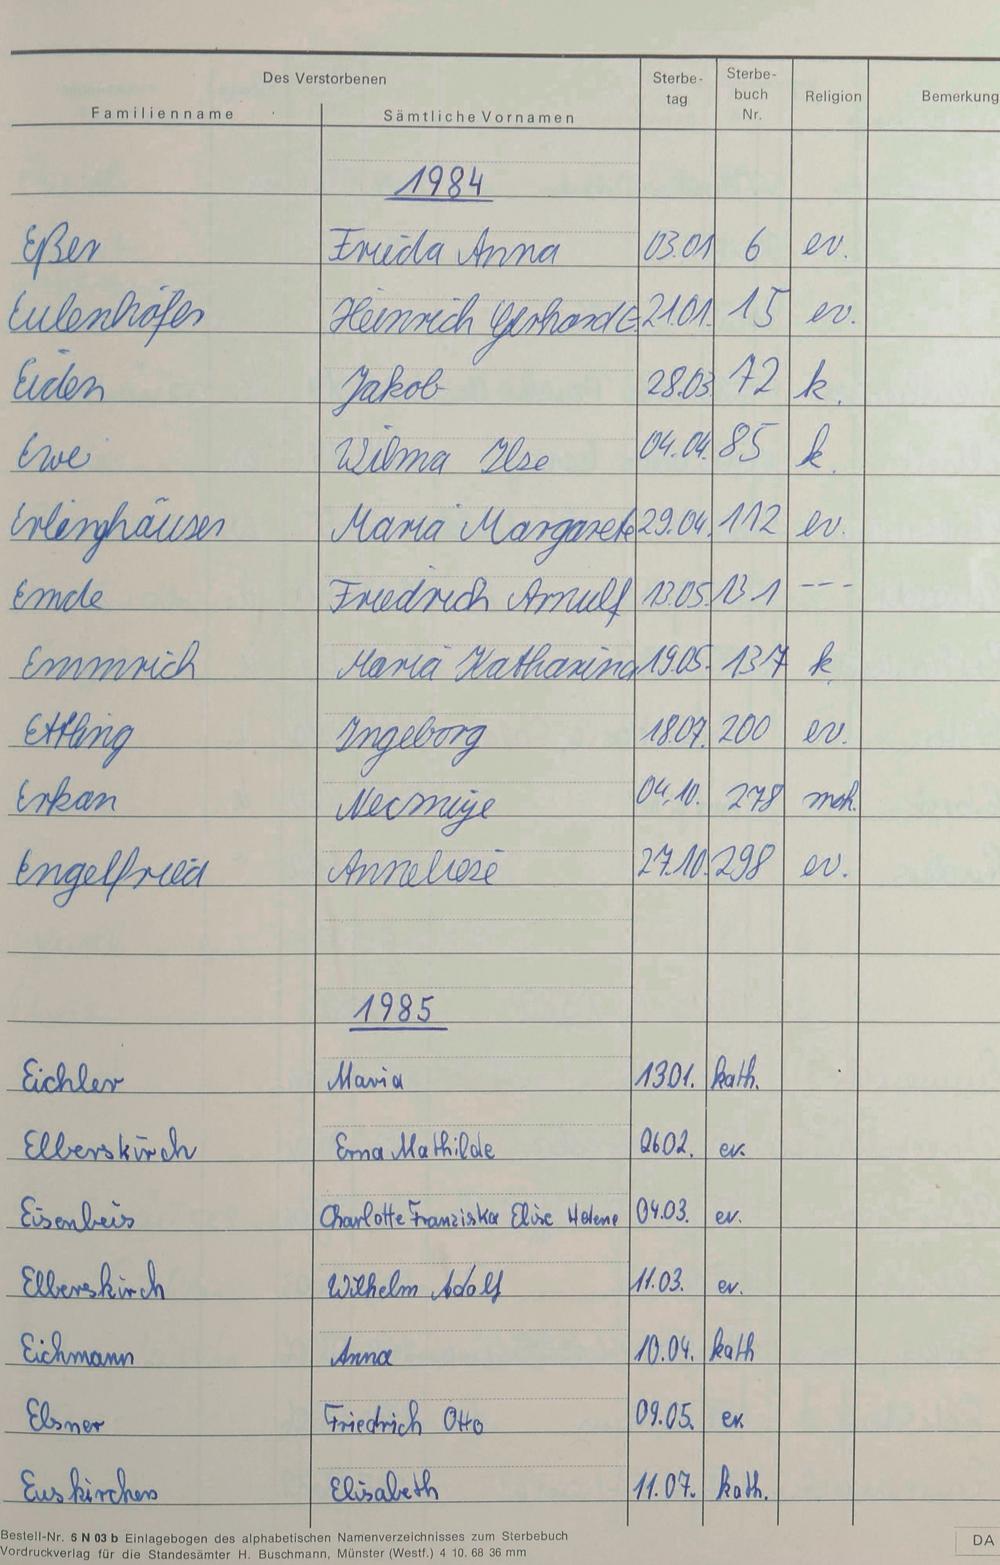 Des Verstorbenen
Familienname Sämtliche Vornamen Sterbe-tag Sterbe-buch Nr. Religion Bemerkung
1984
Eßer Frieda Anna 03.01 6 ev.
Eulenhöfer Heinrich Gerhard E. 21.01. 15 ev.
Eiden Jakob 28.03 72 k.
Ewe Wilma Ilse 04.04. 85 k.
Erlinghäuser Maria Margarete 29.04. 112 ev.
Emde Friedrich Arnulf 13.05. 131 ---
Emmrich Maria Katharina 19.05. 137 k.
Ettling Ingeborg 18.07. 200 ev.
Erkan Necmiye 04.10. 278 moh.
Engelfried Anneliese 27.10. 298 ev.
1985
Eichler Maria 13.01. kath.
Elberskirch Erna Mathilde 26.02. ev.
Eisenbeis Charlotte Franziska Elise Helene 04.03. ev.
Elberskirch Wilhelm Adolf 11.03. ev.
Eichmann Anna 10.04. kath
Elsner Friedrich Otto 09.05. ev.
Euskirchen Elisabeth 11.07. kath.
Bestell-Nr. 6 N 03 b Einlagebogen des alphabetischen Namenverzeichnisses zum Sterbebuch
Vordruckverlag für die Standesämter H. Buschmann, Münster (Westf.) 4 10. 68 36 mm
DA